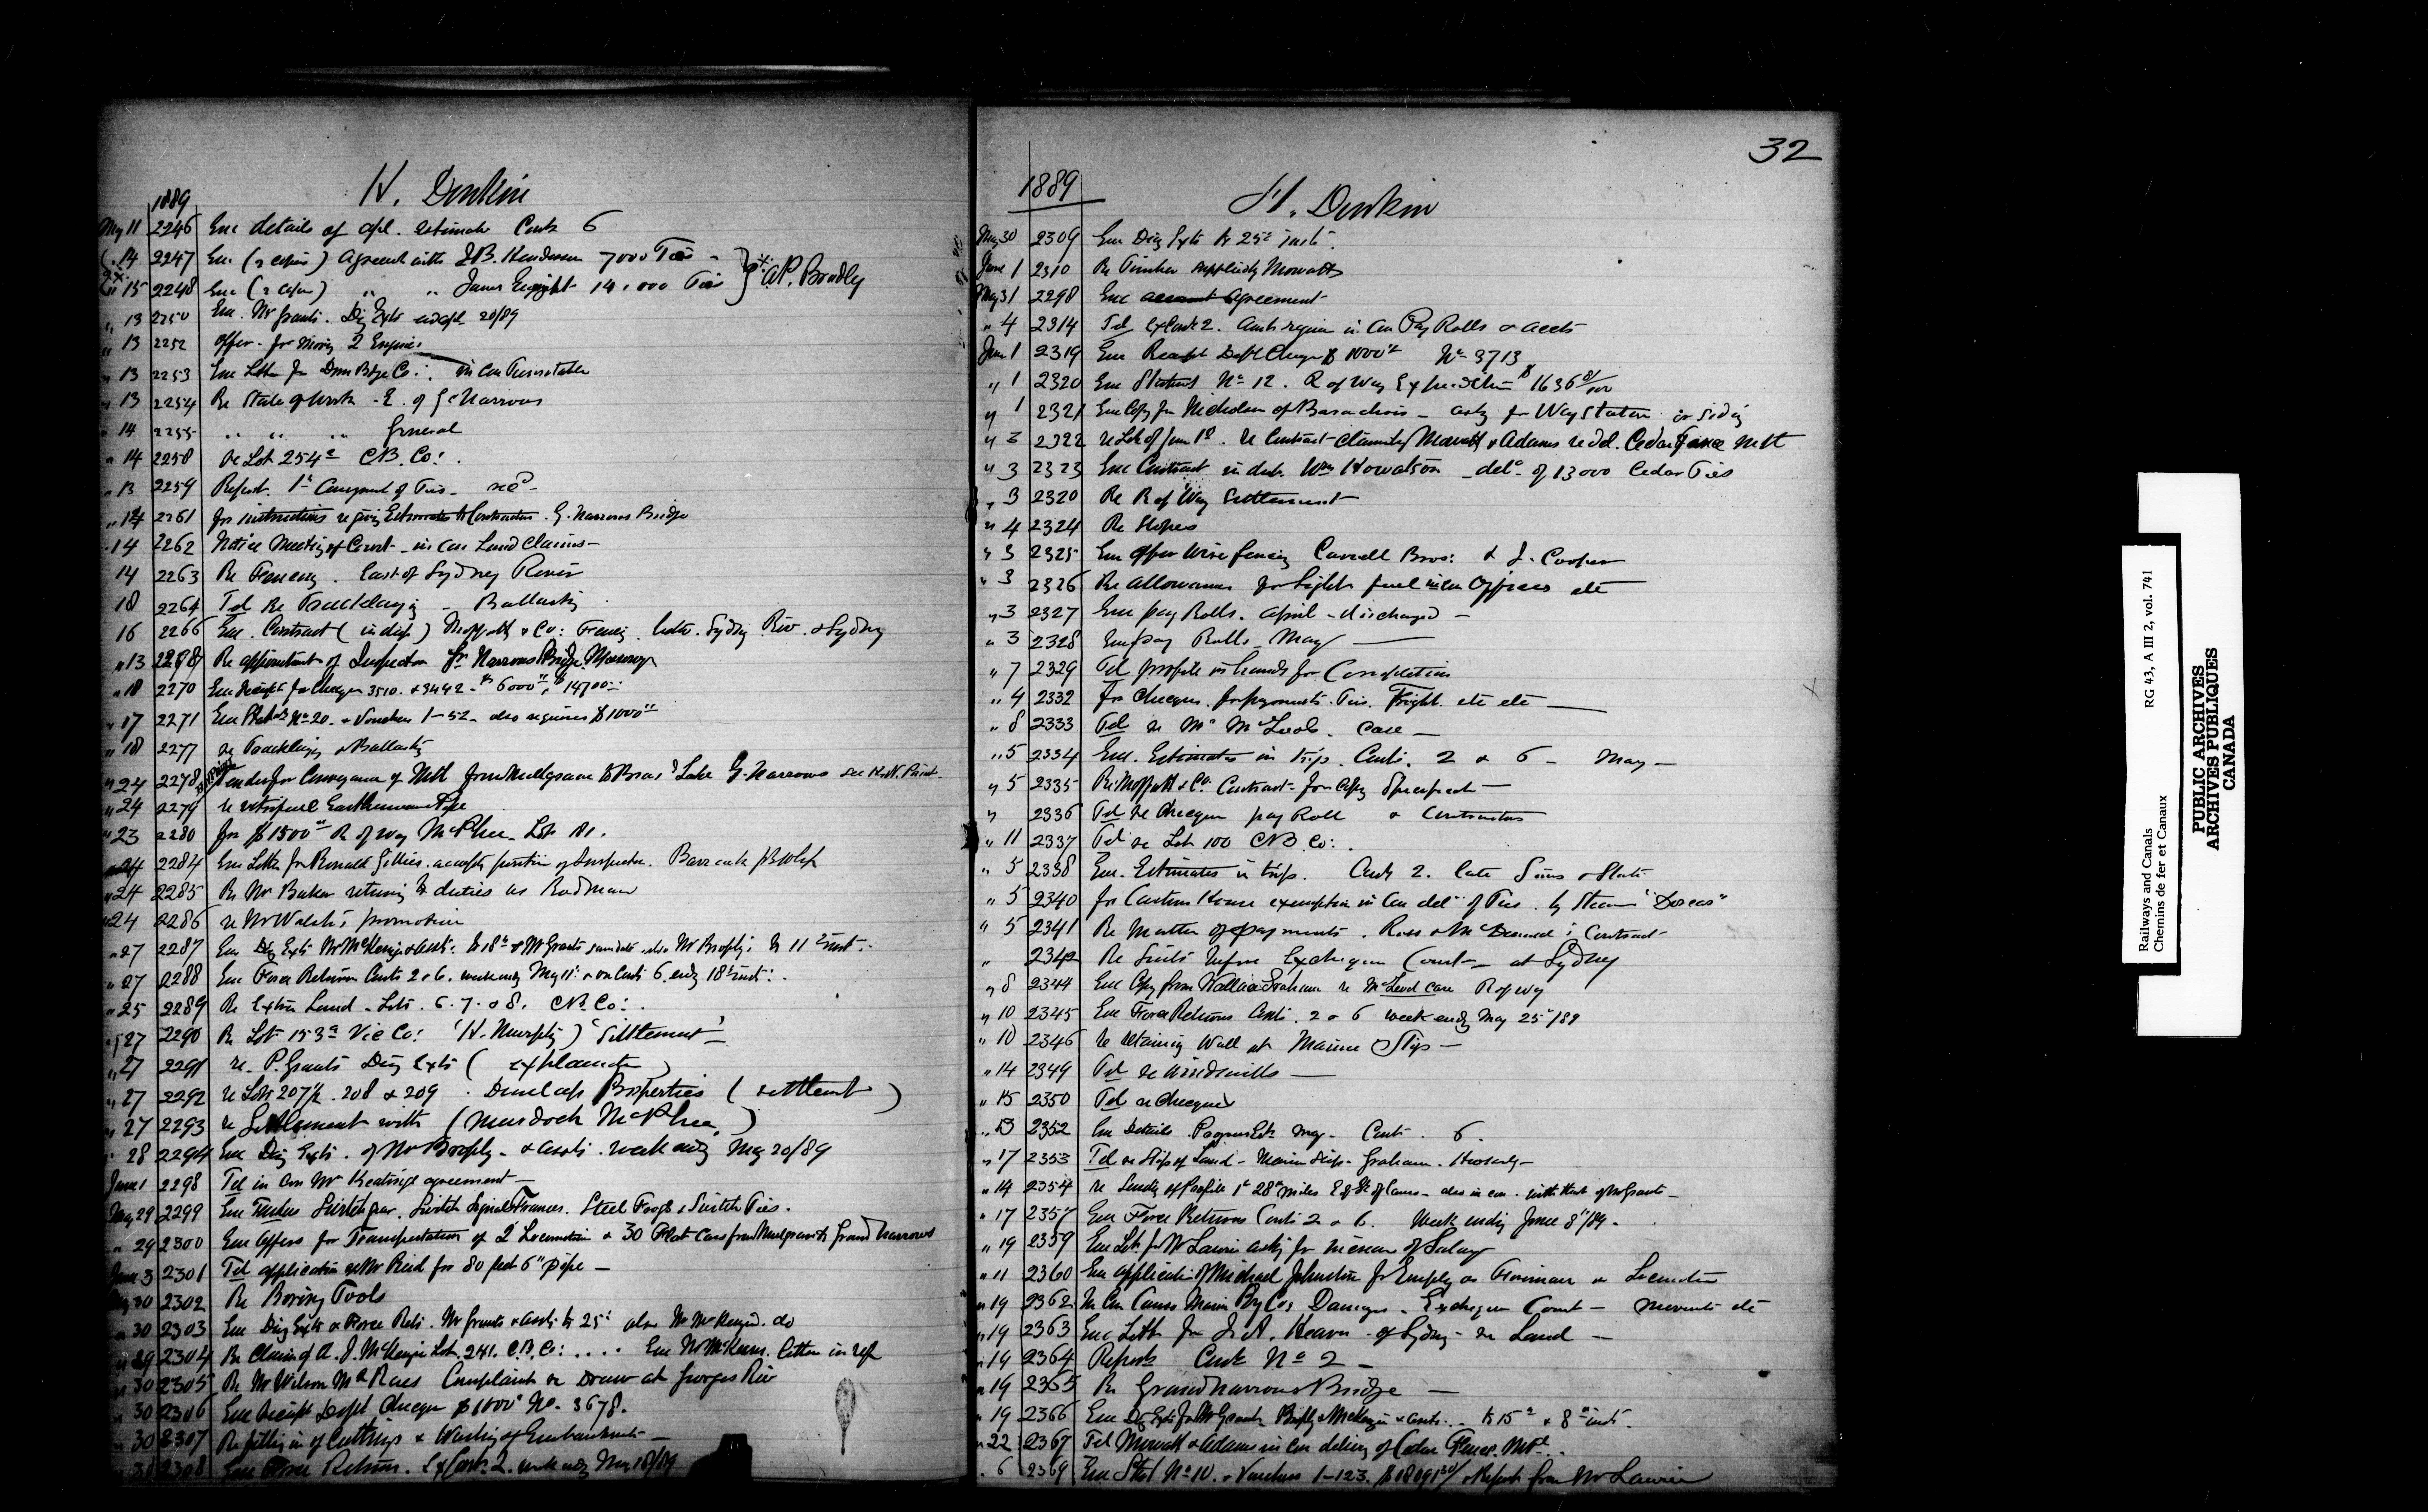 1889 H. Donkin
May 11 2246 Enc details of apl. estimate Cont 6
14 2247 Enc (2 copies) Agreement with J.B. Henderson 7000 Ties
15 2248 Enc (2 copies) " " James Enright 14,000 Ties } A.P. Bradley
" 13 2250 Enc. Mr Grants. Dig Exts 20/89
" 13 2252 Offer - for Moving 2 Engines
" 13 2253 Enc Letter fr Dom Bdge Co: in con Turntable
" 13 2254 Re State of Work - E. of G. Narrows
" 14 2255 " " " General
" 14 2258 Re Lot 254a C.B. Co:
" 13 2259 Report. 1st Consignment of Ties - recd
" 14 2261 for instructions re giving Estimates to Contractors. G. Narrows Bridge
" 14 2262 Notice Meeting of Court - in con Land Claims -
14 2263 Re Fencing. East of Sydney River
18 2264 Tel Re Tracklaying - Ballasting
16 2266 Enc. Contract (in dup) Moffatt & Co: Fencing. betw. Sydney Riv. & Sydney
" 13 Re appointment of Inspector Gr. Narrows Bridge Masonry
" 18 2270 Enc Receipt for Cheques 3510. & 3442 - $6000.00, $14700
" 17 2271 Enc No 20. & Vouchers 1-52 - also requires $1000.00
" 18 2277 re Tracklaying & Ballasting
" 24 2278 Tender for Conveyance of Mtl from Mulgrave to Bras d'Or Lake G. Narrows
" 24 2279 re vitrified Earthenware Pipe
" 23 2280 for $1500.00 R of Way McPhee - Lot 81.
" 24 2284 Enc Letter fr Ronald Gillies. accepts position of Inspector.
" 24 2285 Re Mr Baker returning to duties as Rodman
" 24 2286 re Mr Walsh's promotion
" 27 2287 Enc Dig Exts Mr McKenzie & assts: to 18th & Mr Grants same date also Mr Brophy's to 11 Inst.
" 27 2288 Enc Force Returns Conts 2 & 6. week endg May 11: & on Cont 6 endg 18th inst:
" 25 2289 Re Extra Land - Lots. 6. 7. & 8. C.B. Co:
" 27 2290 Re Lot 153a Vic Co: (H. Murphy) Settlement -
" 27 2291 re. P. Grants Dig Exts (explanation)
" 27 2292 re Lots 207½. 208 & 209. Dunlap Properties (settlement)
" 27 2293 re Settlement with (Murdoch McPhee.)
" 28 2294 Enc Dig Exts. of Mr Brophy - & assts. week endg May 20/89
June 1 2298 Tel in con Mr Keatinge agreement -
May 29 2299 Enc Tenders Switch gear. Switch Signals Frames. Steel Frogs & Switch Ties.
" 29 2300 Enc Offers for Transportation of 2 Locomotives & 30 Flat Cars from Mulgrave to Grand Narrows
June 3 2301 Tel application of Mr Reid for 80 feet 6" pipe -
May 30 2302 Re Boring Tools
" 30 2303 Enc Dig Exts & Force Rets. Mr Grants & assts to 25th also Mr McKenzie. do
" 29 2304 Re Claim of A. J. McKenzie Lot. 241. C.B. Co: .... Enc Mr letter in ref
" 30 2305 Re Mr Wilson McRaes Complaint re Draw at Georges Riv
" 30 2306 Enc Receipt Dept Cheque $1000 No. 3678.
" 30 2307 Re filling in of Cuttings & Washing of Embankments -
" 30 2308 Enc Force Returns. Cont. 2. week endg May 18/89
32
1889 H. Donkin
May 30 2309 Enc Dig Exts to 25th inst.
June 1 2310 Re Timber supplied by Mowatt
May 31 2298 Enc Agreement
" 4 2314 Tel Cont 2. in con Pay Rolls & accts
June 1 2319 Enc Receipt Dept Cheque $1000 No 3713
" 1 2320 Enc Statement No 12. R of Way Expenditure $1636
" 1 2321 Enc Copy fr Nicholson of Barachois - askg for Way Station or Siding
" 3 2322 re Let of June 1st. re Contract Mowatt & Adams re del. Cedar Fence Mtl
" 3 2323 Enc Contract in dub. Wm Howatson - dely of 13000 Cedar Ties
" 3 2320 Re R of Way Settlement
" 4 2324 Re Slopes
" 3 2325 Enc Offer Wire fencing Carvell Bros: & J. Cooper
" 3 2326 Re allowances for Light fuel Offices etc
" 3 2327 Enc pay Rolls. April - discharged -
" 3 2328 Enc pay Rolls. May
" 7 2329 Tel profile in hands for Completion
" 4 2332 for Cheques. for payments. Ties. Freight. etc etc
" 8 2333 Tel re Mr McLeods. Case -
" 5 2334 Enc. Estimates in trip. Conts. 2 & 6 - May -
" 5 2335 Re Moffatt & Co. Contract - for Copy Specification
" 2336 Tel re Cheques pay Roll & Contractors
" 11 2337 Tel re Lot 100 C.B. Co:
" 5 2338 Enc. Estimates in trip. Cont 2. late Sims & Slater
" 5 2340 for Custom House exemption in con dely of Ties. by Steamer "Dorcas"
" 5 2341 Re Matter of payments. Ross & McDermid's Contract -
" 2342 Re Suits before Exchequer Court - at Sydney
" 8 2344 Enc Copy from Wallace Graham re McLeod Case R of Wy
" 10 2345 Enc Force Returns Conts. 2 & 6 week endg May 25th/89
" 10 2346 re retaining Wall at Marine Slip -
" 14 2349 Tel re Windmills
" 15 2350 Tel re Cheques
" 13 2352 Enc Details Progress Est May - Cont. 6.
" 17 2353 Tel re Slip of Land - Marine Slip - Graham.
" 14 2354 re Sending of Profile 1st 28 miles
" 17 2357 Enc Force Returns Conts 2 & 6. Week ending June 8th/89.
" 19 2359 Enc Let. fr Mr Lawrie askg for increase of Salary
" 11 2360 Enc application of Michael Johnstone for Employ as Fireman on Locomotive
" 19 2362 In Con Marine Ry Cos Damages. Exchequer Court -
" 19 2363 Enc Letter fr J. A. Hearn - of Sydney - re Land -
" 19 2364 Report Cont No 2 -
" 19 2365 Re Grand Narrows Bridge -
" 19 2366 Enc Dig Exts fr Mr Grant Brophy & McKenzie & assts. to 15th & 8th inst.
" 22 2367 Tel Mowatt & Adams in con delivery of Cedar Fence. Mtl.
" 6 2369 Enc Stat No 10. & Vouchers 1-123. & Report from Mr Lawrie
Railways and Canals RG 43, A III 2, vol. 741
Chemins de fer et Canaux
PUBLIC ARCHIVES
ARCHIVES PUBLIQUES
CANADA